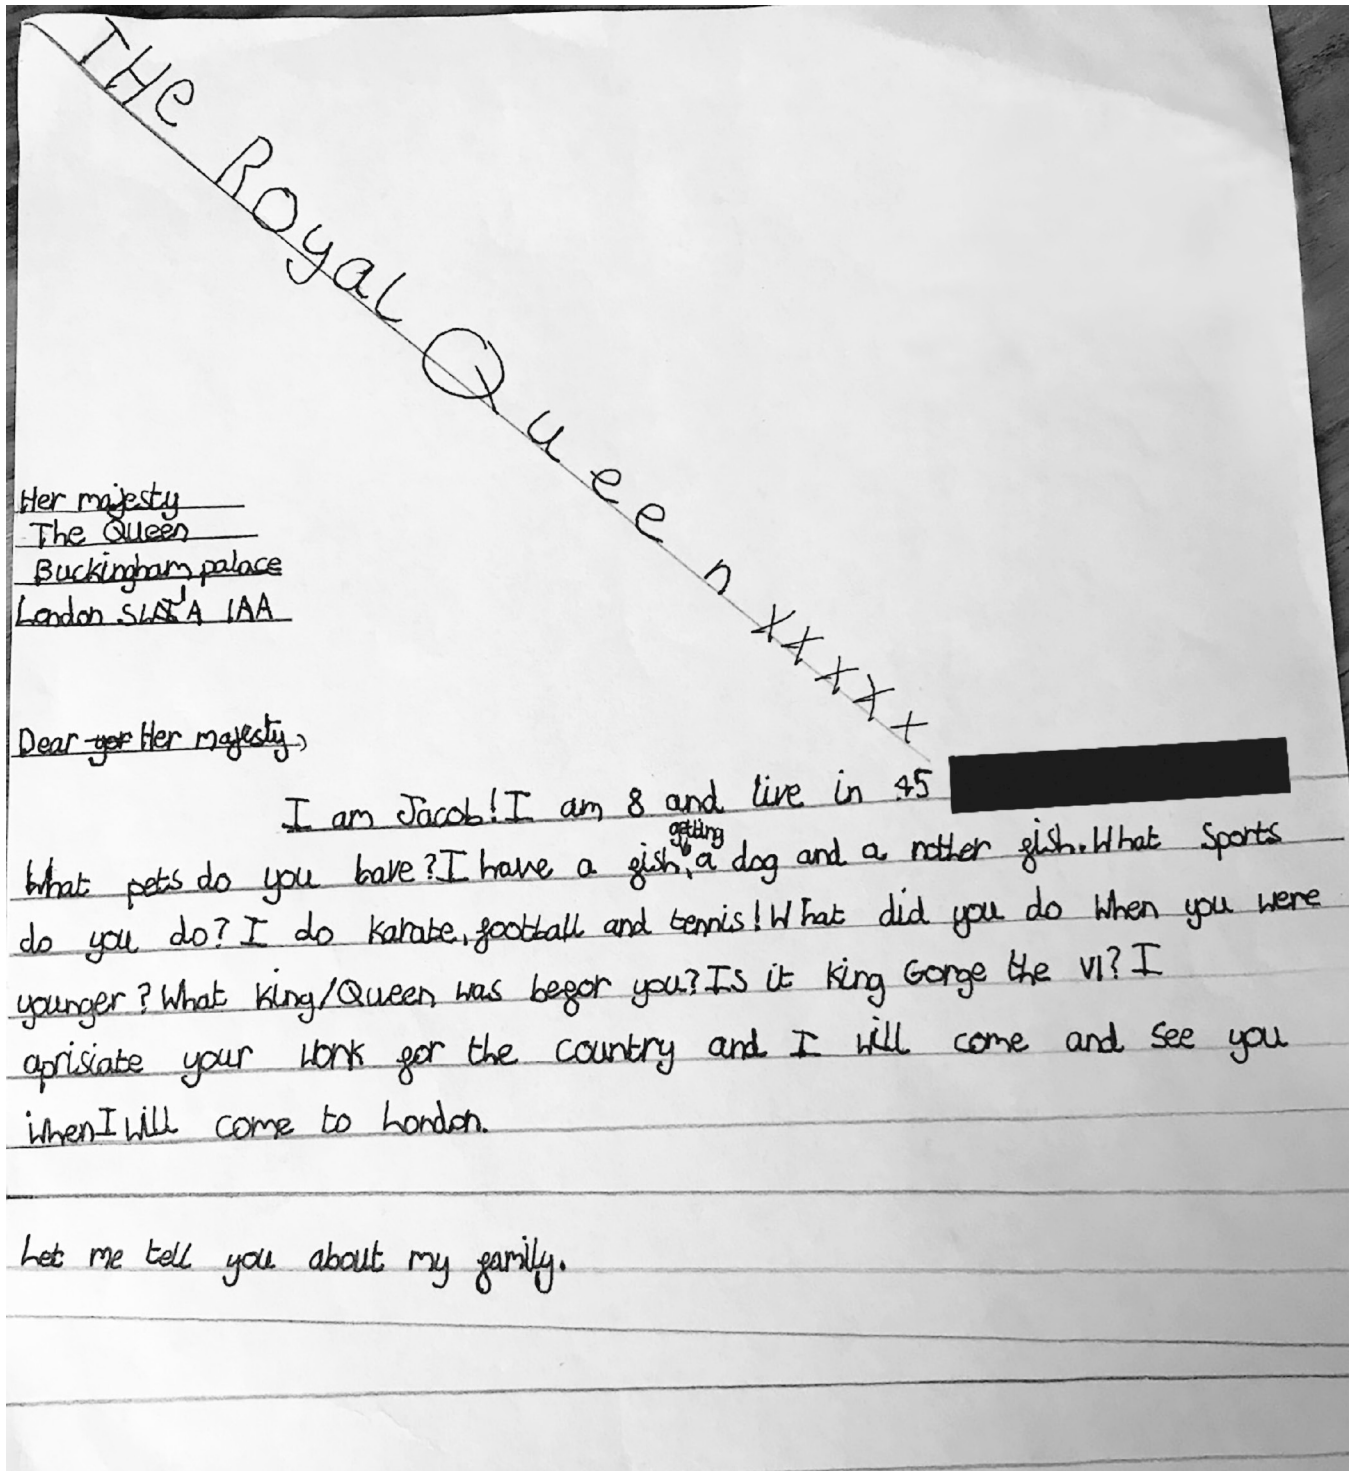 THe Royal Queen xxxxx
Her majesty
The Queen
Buckingham palace
London 1AA
Dear yor Her majesty,
I am Jacob! I am 8 and live in 45
What pets do you have? I have a fish, getting a dog and a nother fish. What Sports
do you do? I do Karate, football and tennis! What did you do when you were
younger? What King/Queen was befor you? Is it King Gorge the VI? I
aprisiate your work for the country and I will come and see you
when I will come to London.
Let me tell you about my family.